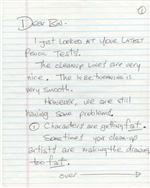 1
Dear Bill-
I just looked at your latest
pencil tests.
The cleanup lines are very
nice. The inbetweening is
very smooth.
However, we are still
having some problems.
1 Characters are getting fat.
Sometimes you clean-up
artists are making the drawings
too fat.
over